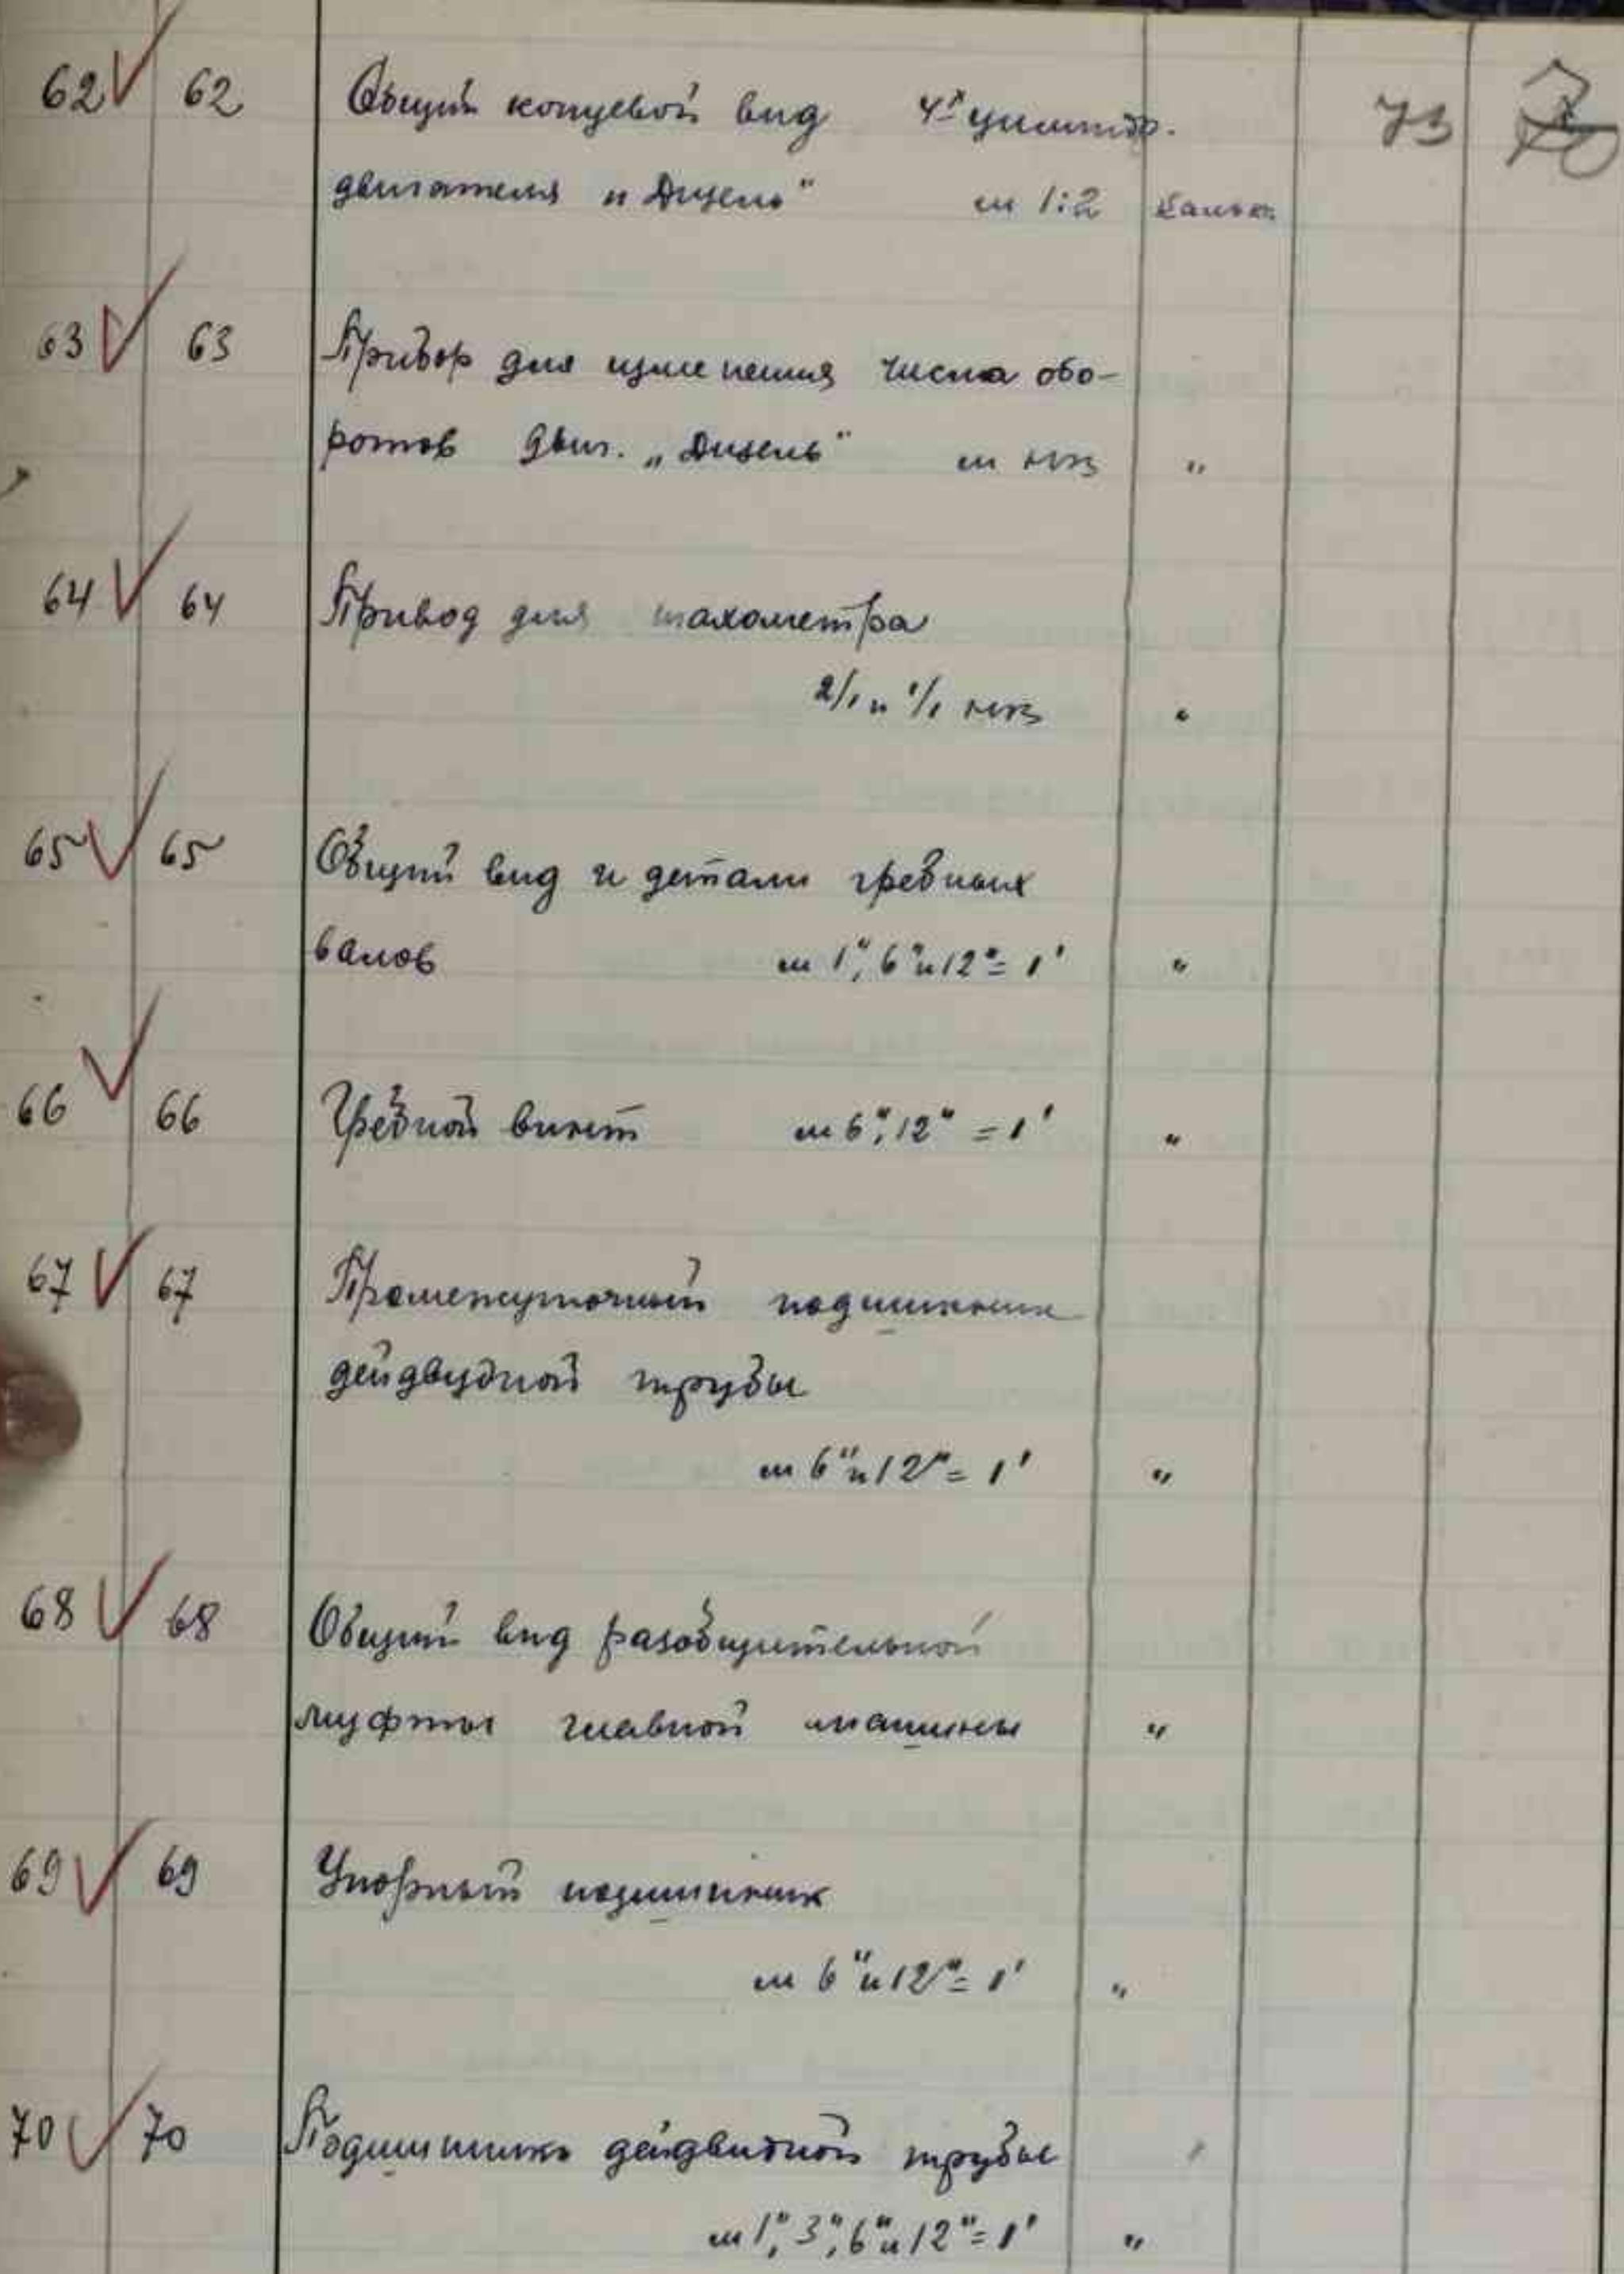 62 62 Общий концевой вид 4х цилиндр. 73
двигателя „Дизель“ м 1:2 Кальк.
63 63 Прибор для изменения числа обо-
ротов двиг. „Дизель“ м "
64 64 Привод для тахометра
2/1 и 1/1 "
65 65 Общий вид и детали гребных
валов м 1", 6" и 12" = 1' "
66 66 Гребной винт м 6", 12" = 1' "
67 67 Промежуточный подшипник
дейдвудной трубы
м 6" и 12" = 1' "
68 68 Общий вид разобщительной
муфты главной машины "
69 69 Упорный подшипник
м 6" и 12" = 1' "
70 70 Подшипник дейдвудной трубы
м 1", 3", 6" и 12" = 1' "